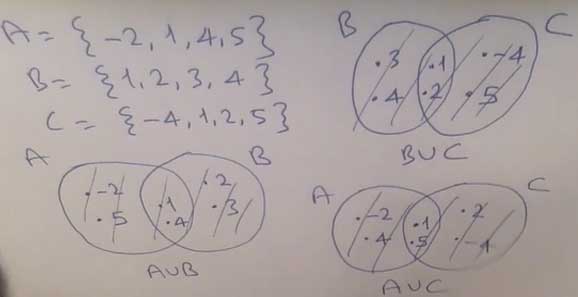 A = {-2, 1, 4, 5}
B = {1, 2, 3, 4}
C = {-4, 1, 2, 5}
B C
3 1 -4
4 2 5
B∪C
A B
-2 1 2
5 4 3
A∪B
A C
-2 1 2
4 5
A∪C